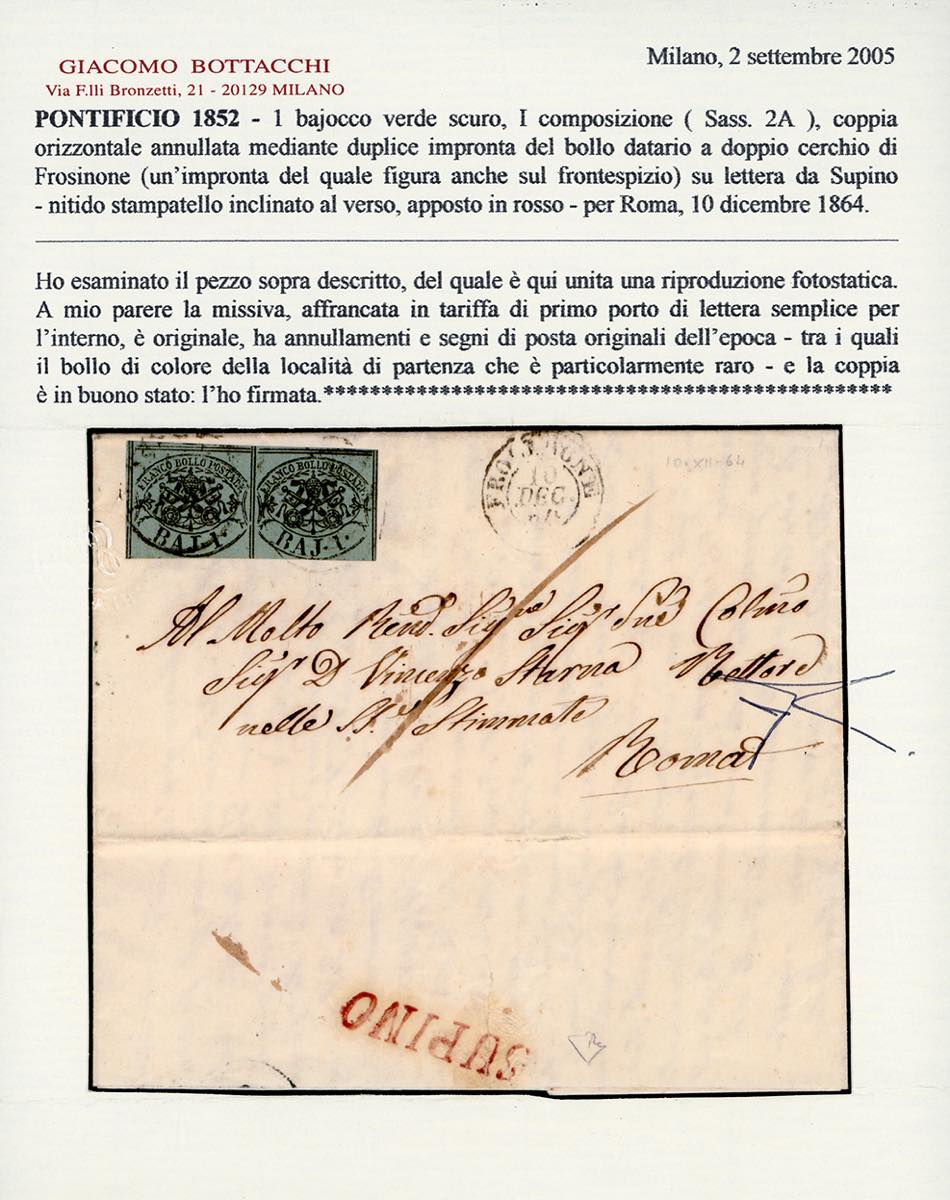 GIACOMO BOTTACCHI
Via F.lli Bronzetti, 21 - 20129 MILANO
Milano, 2 settembre 2005
PONTIFICIO 1852 - 1 bajocco verde scuro, I composizione ( Sass. 2A ), coppia
orizzontale annullata mediante duplice impronta del bollo datario a doppio cerchio di
Frosinone (un'impronta del quale figura anche sul frontespizio) su lettera da Supino
- nitido stampatello inclinato al verso, apposto in rosso - per Roma, 10 dicembre 1864.
Ho esaminato il pezzo sopra descritto, del quale è qui unita una riproduzione fotostatica.
A mio parere la missiva, affrancata in tariffa di primo porto di lettera semplice per
l'interno, è originale, ha annullamenti e segni di posta originali dell'epoca - tra i quali
il bollo di colore della località di partenza che è particolarmente raro - e la coppia
è in buono stato: l'ho firmata.**************************************************
FRANCO BOLLO POSTALE
BAJ. 1.
FRANCO BOLLO POSTALE
BAJ. 1.
FROSINONE
10
DEC.
64
10-XII-64
Al Molto Rend. Sigre Sigr Colmo
Sigr D Vincenzo Starna Rettore
nelle SS. Stimmate
Roma
SUPINO